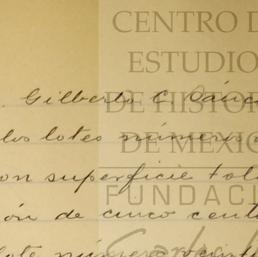 CENTRO D
ESTUDIO
DE HISTOR
DE MEXIC
FUNDACI
Gilberto C.
los lotes números
on superficie total
ón de cinco cent